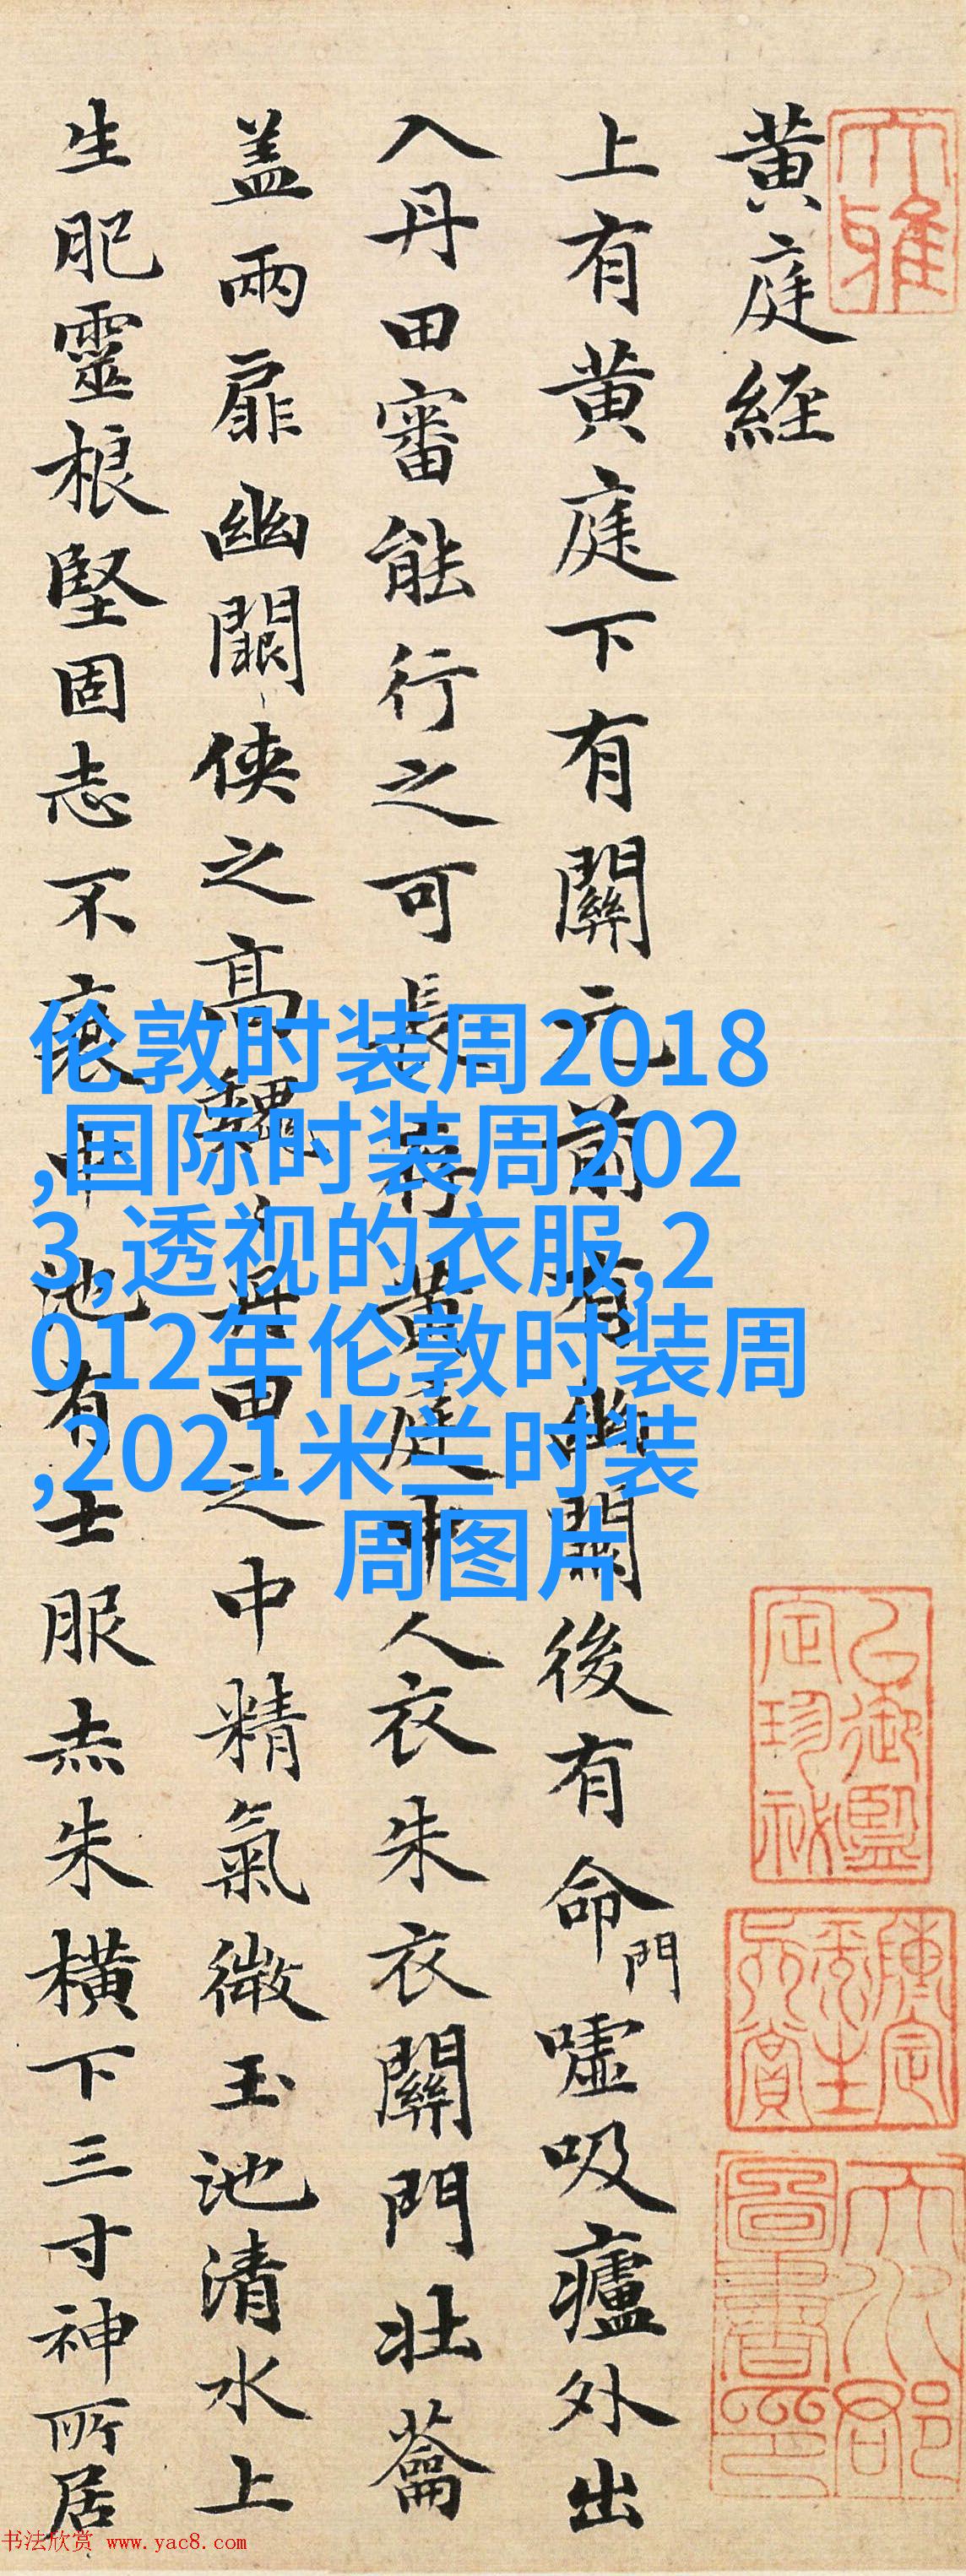 黄庭經
上有黄庭下有關元前有幽闕後有命門嘘吸廬外出
入丹田審能行之可長存黄庭中人衣朱衣關門壮蘥
盖兩扉幽闕侠之高巍丹田之中精氣微玉池清水上
生肥靈根堅固志不衰中池有士服赤朱横下三寸神所居
伦敦时装周2018
,国际时装周202
3,透视的衣服,2
012年伦敦时装周
,2021米兰时装
周图片
大雅
书法欣赏 www.yac8.com